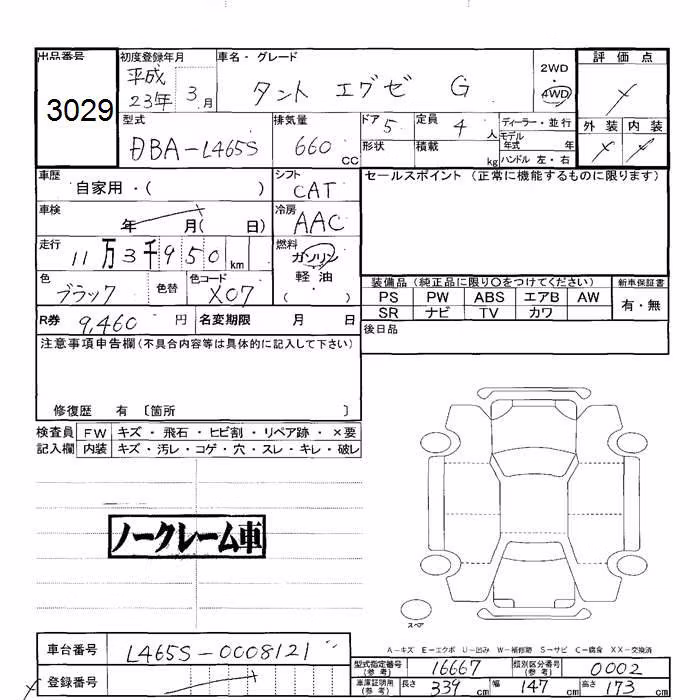 出品番号 初度登録年月 車名・グレード 評価点
3029 平成 23年 3月 タント エグゼ G 2WD
4WD
外装 内装
型式 排気量 ドア 5 定員 4人 ディーラー・並行
DBA-L465S 660 cc 形状 積載 kg モデル年式 年
ハンドル 左・右
車歴 自家用・( ) シフト CAT セールスポイント (正常に機能するものに限ります)
車検 年 月( 日) 冷房 AAC
走行 11万3千950km 燃料 ガソリン
軽油
( )
色 ブラック 色替 色コード X07
装備品 (純正品に限り○をつけてください) 新車保証書
PS PW ABS エアB AW 有・無
SR ナビ TV カワ
R券 9,460 円 名変期限 月 日 後日品
注意事項申告欄(不具合内容等は具体的に記入して下さい)
修復歴 有 〔箇所 〕
検査員 FW キズ・飛石・ヒビ割・リペア跡・×要
記入欄 内装 キズ・汚レ・コゲ・穴・スレ・キレ・破レ
ノークレーム車
スペア
A-キズ E-エクボ U-凹み W-補修跡 S-サビ C-腐食 XX-交換済
車台番号 L465S-0008121 型式指定番号(参考) 16667 類別区分番号(参考) 0002
登録番号 車庫証明用(参考) 長さ 339cm 幅 147cm 高さ 173cm